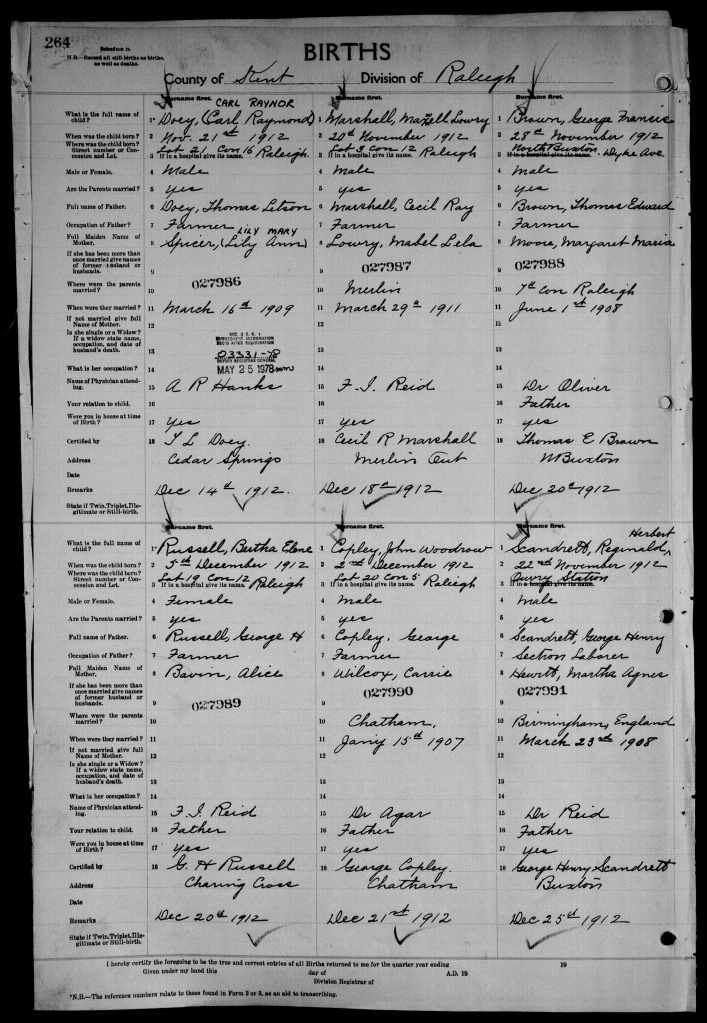 264
Schedule A.
N.B.—Record all still-births as births, as well as deaths.
BIRTHS
County of Kent Division of Raleigh
Surname first. Surname first. Surname first.
CARL RAYNOR
What is the full name of child? 1 Doey, (Carl Raymond) 1 Marshall, Maxell Lowry 1 Brown, George Francis
When was the child born? 2 Nov. 21st 1912 2 20th November 1912 2 28th November 1912
Where was the child born? Street number or Concession and Lot. 3 If in a hospital give its name. Lot 21 Con 16 Raleigh 3 If in a hospital give its name. Lot 3 Con 12 Raleigh 3 If in a hospital give its name. North Buxton. Dyke Ave
Male or Female. 4 Male 4 Male 4 Male
Are the Parents married? 5 yes 5 yes 5 yes
Full name of Father. 6 Doey, Thomas Litson 6 Marshall, Cecil Ray 6 Brown, Thomas Edward
Occupation of Father? 7 Farmer 7 Farmer 7 Farmer
LILY MARY
Full Maiden Name of Mother. 8 Spicer, (Lily Ann) 8 Lowry, Mabel Lela 8 Moore, Margaret Maria
If she has been more than once married give names of former husband or husbands. 9 9 9
027986 027987 027988
Where were the parents married? 10 10 Merlin 10 7th Con Raleigh
When were they married? 11 March 16th 1909 11 March 29th 1911 11 June 1st 1908
If not married give full Name of Mother. 12
Is she single or a Widow? If a widow state name, occupation, and date of husband's death. 13
03331-78
DEPUTY REGISTRAR GENERAL
What is her occupation? 14 MAY 25 1978
Name of Physician attending. 15 A R Hanks 15 F. I. Reid 15 Dr Oliver
Your relation to child. 16 16 16 Father
Were you in house at time of Birth? 17 yes 17 yes 17 yes
Certified by 18 T L Doey. 18 Cecil R Marshall 18 Thomas E Brown
Address Cedar Springs Merlin Ont N Buxton
Date
Remarks Dec 14th 1912. Dec 18th 1912 Dec 20th 1912
State if Twin, Triplet, Illegitimate or Still-birth.
Surname first. Surname first. Surname first.
Herbert
What is the full name of child? 1 Russell, Bertha Elene 1 Copley, John Woodrow 1 Scandrett, Reginald
When was the child born? 2 5th December 1912 2 2nd December 1912 2 22nd November 1912
Where was the child born? Street number or Concession and Lot. 3 If in a hospital give its name. Lot 19 Con 12 Raleigh 3 If in a hospital give its name. Lot 20 Con 5 Raleigh 3 If in a hospital give its name. Station
Male or Female. 4 Female 4 Male 4 Male
Are the Parents married? 5 yes 5 yes 5 yes
Full name of Father. 6 Russell, George H 6 Copley, George 6 Scandrett, George Henry
Occupation of Father? 7 Farmer 7 Farmer 7 Section Laborer
Full Maiden Name of Mother. 8 Bavin, Alice 8 Wilcox, Carrie 8 Hewitt, Martha Agnes
If she has been more than once married give names of former husband or husbands. 9 9 9
027989 027990 027991
Where were the parents married? 10 10 Chatham, 10 Birmingham, England
When were they married? 11 11 Jan'y 15th 1907 11 March 23rd 1908
If not married give full Name of Mother. 12
Is she single or a Widow? If a widow state name, occupation, and date of husband's death. 13
What is her occupation? 14
Name of Physician attending. 15 F. I. Reid 15 Dr Agar 15 Dr Reid
Your relation to child. 16 Father 16 Father 16 Father
Were you in house at time of Birth? 17 yes 17 yes 17 yes
Certified by 18 G. H Russell 18 George Copley. 18 George Henry Scandrett
Address Charing Cross Chatham Buxton
Date
Remarks Dec 20th 1912 Dec 21st 1912 Dec 25th 1912
State if Twin, Triplet, Illegitimate or Still-birth.
I hereby certify the foregoing to be the true and correct entries of all Births returned to me for the quarter year ending 19
Given under my hand this day of A.D. 19
Division Registrar of
*N.B.—The reference numbers relate to those found in Form 2 or 3, as an aid to transcribing.